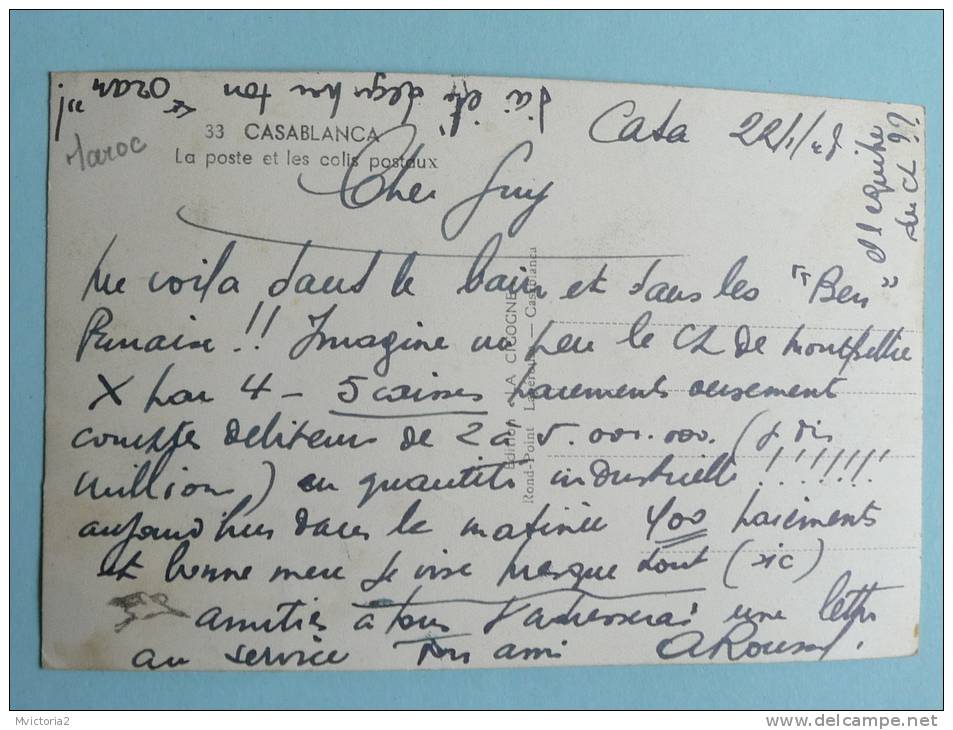 J'ai été déguster ton "Oran"!
Maroc
33 CASABLANCA
La poste et les colis postaux
Casa 22/1/48
Cher Guy
Me voila dans le bain et dans les "Ben
! ! Imagine un peu le CL de Montpellier
X par 4 - 5 caisses paiements versement
comptes débiteurs de 2 à 5.000.000. (je dis
millions) en quantité industrielle !!!!!!!
aujourd'hui dans la matinée 400 paiements
et bonne mere je vise presque tout (sic)
amitiés à tous t'adresserai une lettre
au service Ton ami ARoussel.
et l'equipe
du CL ??
Edition LA CIGOGNE
Rond-Point — Casablanca
Mvictoria2
delcampe.net